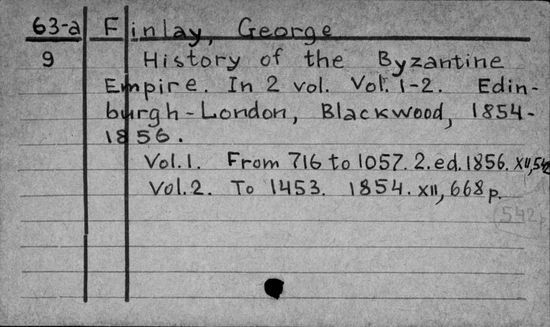 63-a Finlay, George
9 History of the Byzantine
Empire. In 2 vol. Vol. 1-2. Edin-
burgh-London, Blackwood, 1854-
1856.
Vol.1. From 716 to 1057. 2.ed. 1856. XII, 542
Vol.2. To 1453. 1854. XII, 668 p.
(542 p.